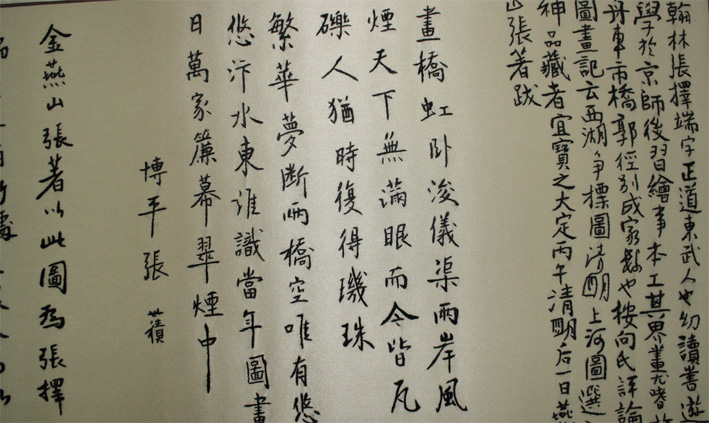 翰林張擇端字正道東武人也幼讀書遊
學於京師後習繪事本工其界畫尤嗜
舟車市橋郭徑別成家數也按向氏評論
圖畫記云西湖爭標圖清明上河圖選
神品藏者宜寶之大定丙午清明后一日燕
山張著跋
畫橋虹臥浚儀渠兩岸風
煙天下無滿眼而今皆瓦
礫人猶時復得璣珠
繁華夢斷兩橋空唯有悠
悠汴水東誰識當年圖畫
日萬家簾幕翠煙中
博平張
金燕山張著以此圖為張擇